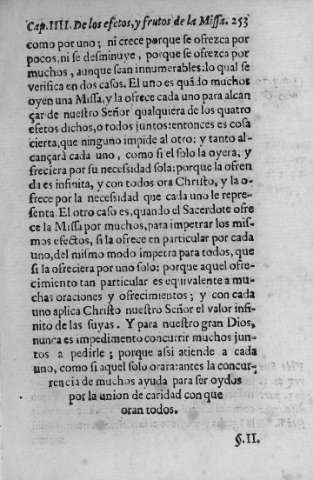 Cap.IIII. De los efetos, y frutos de la Missa. 253
como por uno; ni crece porque se ofrezca por
pocos, ni se desminuye, porque se ofrezca por
muchos, aunque sean innumerables: lo qual se
verifica en dos casos. El uno es quãdo muchos
oyen una Missa, y la ofrece cada uno para alcan
çar de nuestro Señor qualquiera de los quatro
efetos dichos, o todos juntos: entonces es cosa
cierta, que ninguno impide al otro: y tanto al-
cançará cada uno, como si el solo la oyera, y
freciera por su necessidad sola: porque la ofren
da es infinita, y con todos ora Christo, y la o-
frece por la necessidad que cada uno le repre-
senta. El otro caso es, quando el Sacerdote ofre
ce la Missa por muchos, para impetrar los mis-
mos efectos, si la ofrece en particular por cada
uno, del mismo modo impetra para todos, que
si la ofreciera por uno solo: porque aquel ofre-
cimiento tan particular es equivalente a mu-
chas oraciones y ofrecimientos; y con cada
uno aplica Christo nuestro Señor el valor infi-
nito de las suyas. Y para nuestro gran Dios,
nunca es impedimento concurrir muchos jun-
tos a pedirle; porque assi atiende a cada
uno, como si aquel solo orara: antes la concur-
rencia de muchos ayuda para ser oydos
por la union de caridad con que
oran todos.
§.II.